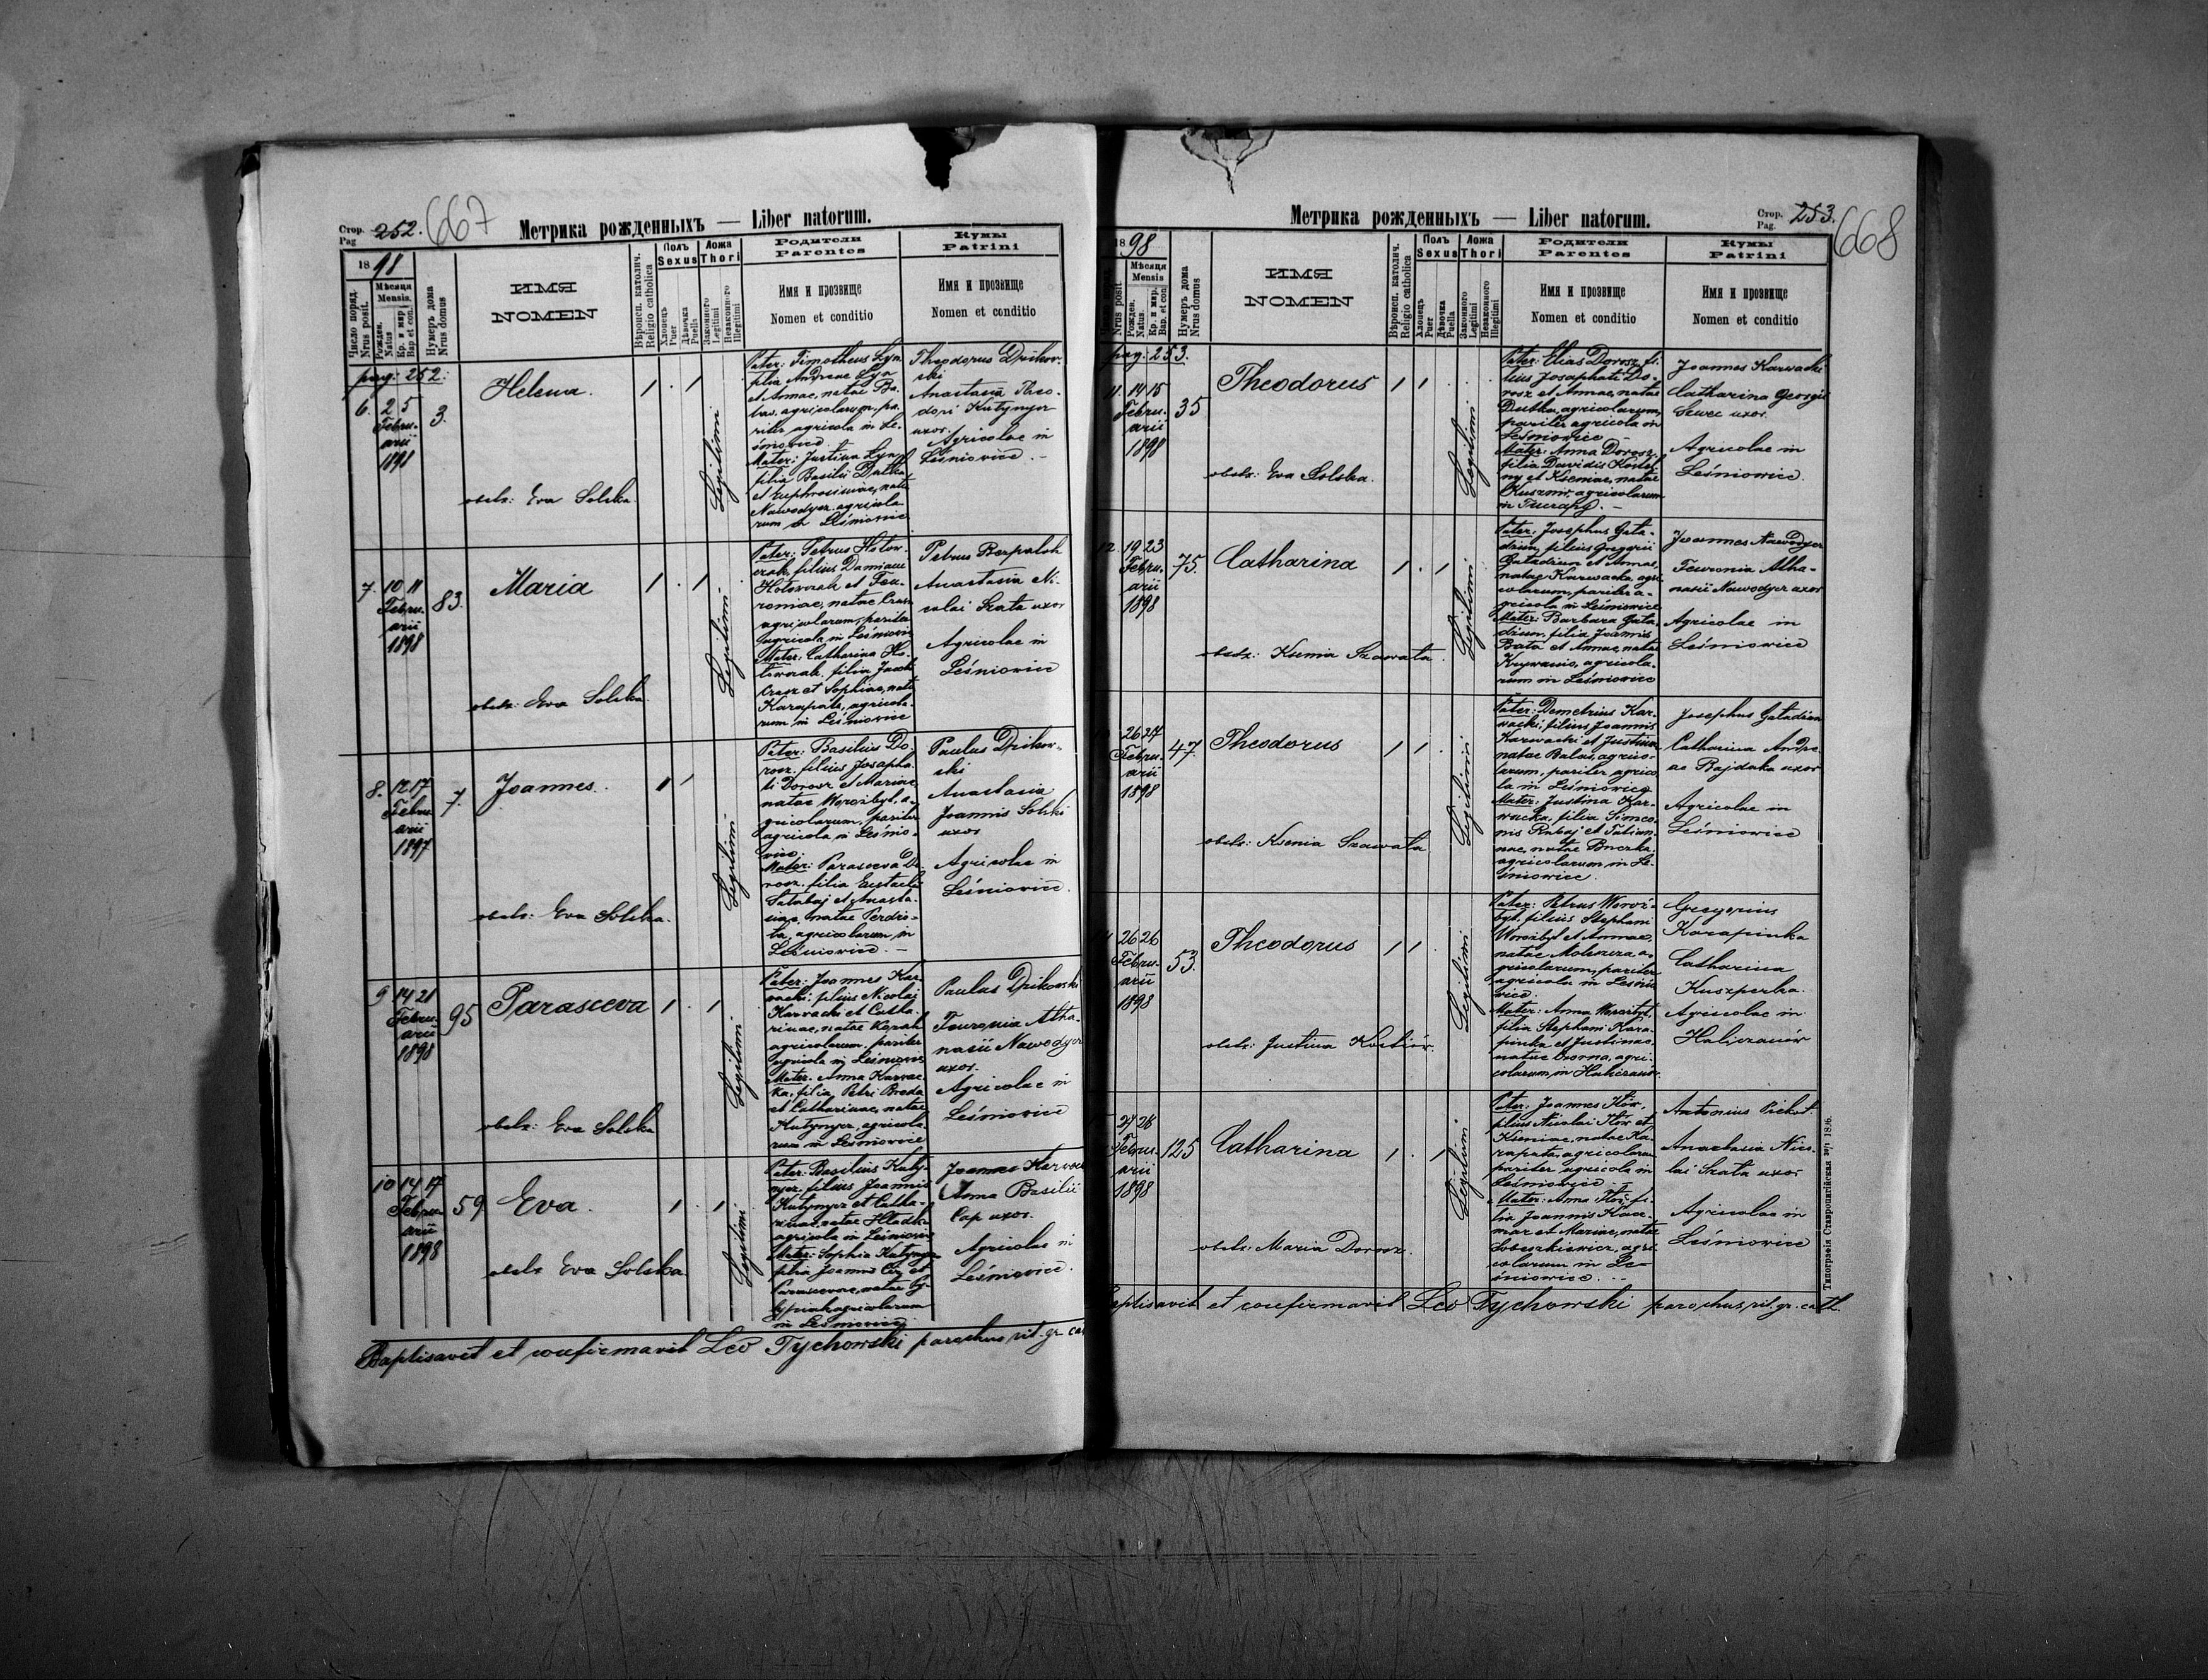 Стор. Pag 252. 667
Метрика рожденныхъ — Liber natorum.
1898
Число поряд. Nrus posit.
Мѣсяця Mensis.
Рожден. Natus
Кр. и мир. Bap et con.
Нумеръ дома Nrus domus
ИМЯ
NOMEN
Вѣроисп. католич. Religio catholica
Полъ Sexus
Хлопець Puer
Дѣвочка Puella
Ложа Thori
Законного Legitimi
Незаконного Illegitimi
Родители
Parentes
Имя и прозвище
Nomen et conditio
Кумы
Patrini
Имя и прозвище
Nomen et conditio
pag: 252:
6. 2 5 Febru-
arii
1898
3.
Helena.
obstr: Eva Solska.
Legitimi
Pater: Timotheus Lyn
filia Andreae Lyn
et Annae, natae Ba-
bas, agricolarum, pa-
riter agricola in Le-
śniowice.
Mater: Justina Lyn,
filia Basilii Dutka
et Euphrosinae, nata
Nawodyer agricola-
rum in Leśniowice
Theodorus Dzikow-
ski
Anastasia Theo-
dori Kutynyer
uxor.
Agricolae in
Leśniowice.
7. 10 11 Febru-
arii
1898
83.
Maria
obstr: Eva Solska.
Legitimi
Pater: Petrus Hotow-
czak, filius Damiani
Hotowczak et Feu-
roniae, natae
agricolarum, pariter
agricola in Leśniowice
Mater: Catharina Ho-
towczak, filia Jacobi
et Sophiae, nata
Karapata, agricola-
rum in Leśniowice
Petrus Bezpalok
Anastasia Ni-
colai Szata uxor
Agricolae in
Leśniowice
8. 12 17
Febru-
arii
1897
7.
Joannes.
obstr: Eva Solska.
Legitimi
Pater: Basilius Do-
rosz, filius Josapha-
ti Dorosz et Mariae,
natae Worożbyt, a-
gricolarum, pariter
agricola in Leśnio-
wice.
Mater: Parasceva Do-
rosz, filia Eustachii
Salabaj et Anasta-
siae, natae
agricolarum in
Leśniowice. —
Paulus Dzikow-
ski
Anastasia
Joannis Solski
uxor
Agricolae in
Leśniowice.
9 14 21
Febru-
arii
1898
95
Parasceva
obstr: Eva Solska
Legitimi
Pater: Joannes Kar-
wacki, filius Nicolai
Karwacki et Catha-
rinae, natae
agricolarum, pariter
agricola in Leśniowice
Mater: Anna Karwac-
ka, filia Petri Breda
et Catharinae, natae
Kutynyer, agricola-
rum in Leśniowice
Paulus Dzikowski
Feuronia Atha-
nasii Nawodyer
uxor.
Agricolae in
Leśniowice
10 14 17
Febru-
arii
1898
59
Eva.
obstr Eva Solska.
Legitimi
Pater: Basilius Kuty-
nyer, filius Joannis
Kutynyer et Catha-
rinae, natae Hladka
agricola in Leśniowice
Mater: Sophia Kutynyer
filia Joannis et
Parascevae, natae
agricolarum
in Leśniowice.
Joannes
Anna Basilii
Cap uxor.
Agricolae in
Leśniowice.
Baptisavit et confirmavit Leo Tychowski parochus rit. gr. ca
Метрика рожденныхъ — Liber natorum.
Стор. Pag. 253. 668
1898
Nrus posit.
Мѣсяця Mensis
Рожден. Natus.
Кр. и мир. Bap. et con.
Нумеръ дома Nrus domus
ИМЯ
NOMEN
Вѣроисп. католич. Religio catholica
Полъ Sexus
Хлопець Puer
Дѣвочка Puella
Ложа Thori
Законного Legitimi
Незаконного Illegitimi
Родители
Parentes
Имя и прозвище
Nomen et conditio
Кумы
Patrini
Имя и прозвище
Nomen et conditio
pag: 253.
11. 14 15
Febru-
arii
1898
35
Theodorus
obstr: Eva Solska.
Legitimi
Pater: Elias Dorosz, fi-
lius Josaphati Do-
rosz et Annae, natae
Dutka, agricolarum,
pariter agricola in
Leśniowice —
Mater: Anna Dorosz,
filia Davidis
et Kseniae, natae
Kuszmir, agricolarum
in —
Joannes Karwacki
Catharina Georgii
Szwec uxor.
Agricolae in
Leśniowice.
12. 19 23
Febru-
arii
1898
75.
Catharina
obstr: Ksenia Szawata.
Legitimi
Pater: Josephus Gata-
dziun, filius Gregorii
Gatadziun et Annae,
natae Karwacka, agri-
colarum, pariter a-
gricola in Leśniowice
Mater: Barbara Gata-
dziun, filia Joannis
Bata et Annae, natae
agricola-
rum in Leśniowice
Joannes Nawodyer
Feuronia Atha-
nasii Nawodyer uxor
Agricolae in
Leśniowice
26 27
Febru-
arii
1898
47.
Theodorus
obstr: Ksenia Szawata
Legitimi
Pater: Demetrius Kar-
wacki, filius Joannis
Karwacki et Justinae,
natae Balas, agrico-
larum, pariter agrico-
la in Leśniowice
Mater: Justina Kar-
wacka, filia Simeo-
nis et Julian-
nae, natae
agricolarum in Le-
śniowice.
Josephus Gatadziun
Catharina Andre-
ae Bajdaka uxor
Agricolae in
Leśniowice
26 26
Febru-
arii
1898
53.
Theodorus
obstr: Justina Kostiów.
Legitimi
Pater: Petrus Worož-
byt, filius Stephani
Worožbyt et Annae,
natae a-
gricolarum, pariter
agricola in Leśnio-
wice.
Mater: Anna Worožbyt,
filia Stephani Kara-
pinka et Justinae,
natae agri-
colarum in Haliczanów.
Gregorius
Karapinka
Catharina
Kuszperka.
Agricolae in
Haliczanów
27 28
Febru-
arii
1898
125
Catharina
obstr: Maria Dorosz.
Legitimi
Pater: Joannes
filius Nicolai et
Kseniae, natae Ka-
rapata, agricolarum
pariter agricola in
Leśniowice. —
Mater: Anna fi-
lia Joannis
et Mariae, natae
Sobeszkiewicz, agri-
colarum in Le-
śniowice. —
Antonius
Anastasia Nico-
lai Szata uxor
Agricolae in
Leśniowice
aptisavit et confirmavit Leo Tychowski parochus rit. gr. cath.
Типографія Ставропигійская